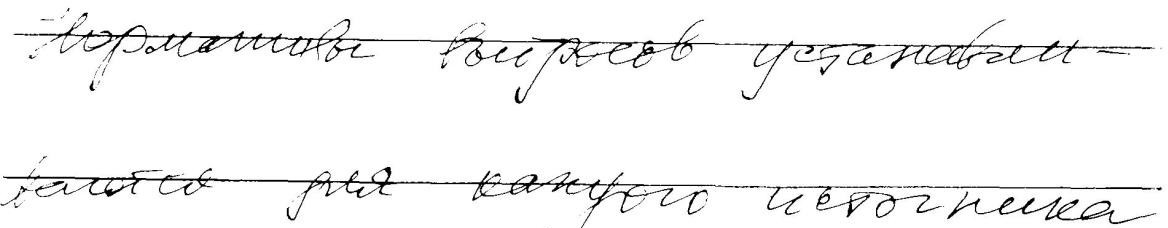 Нормативы выбросов устанавли-
ваются для каждого источника